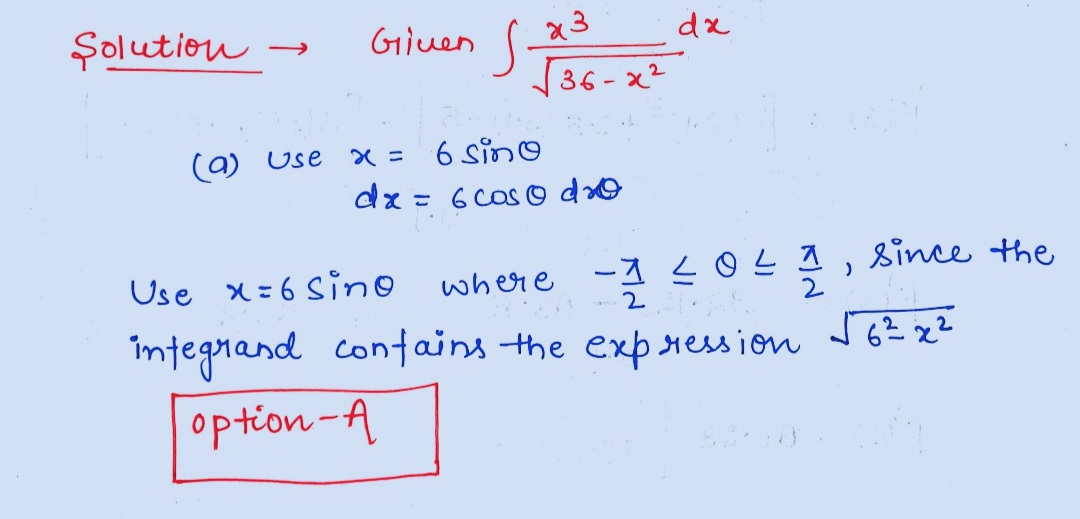 Solution → Given ∫ x3/√36-x² dx
(a) Use x = 6 sinθ
dx = 6 cosθ dθ
Use x=6 Sinθ where -π/2 ≤ θ ≤ π/2, Since the
integrand contains the expression √6²-x²
option-A